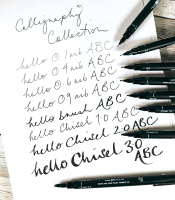 Calligraphy
Collection
hello 0.1 nib ABC
hello 0.4 nib ABC
hello 0.6 nib ABC
hello 0.9 nib ABC
hello brush ABC
hello Chisel 1.0 ABC
hello Chisel 2.0 ABC
hello Chisel 3.0
ABC